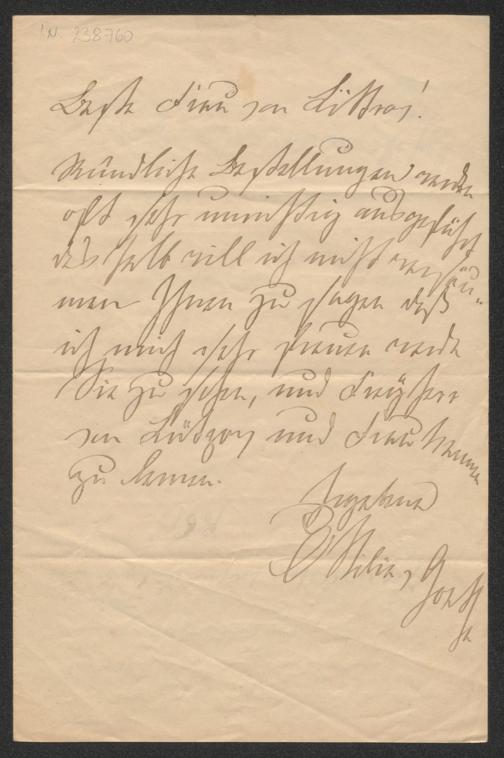 I.N. 238760
Beste Frau von Littrow!
Mündliche Bestellungen werden
oft sehr unrichtig ausgeführt
deshalb will ich nicht versäu-
men Ihnen zu sagen daß
ich mich sehr freuen werde
Sie zu sehen, und Freyherr
von Lützow und Frau kennen
zu lernen.
Ergebene
Ottilie v Goethe